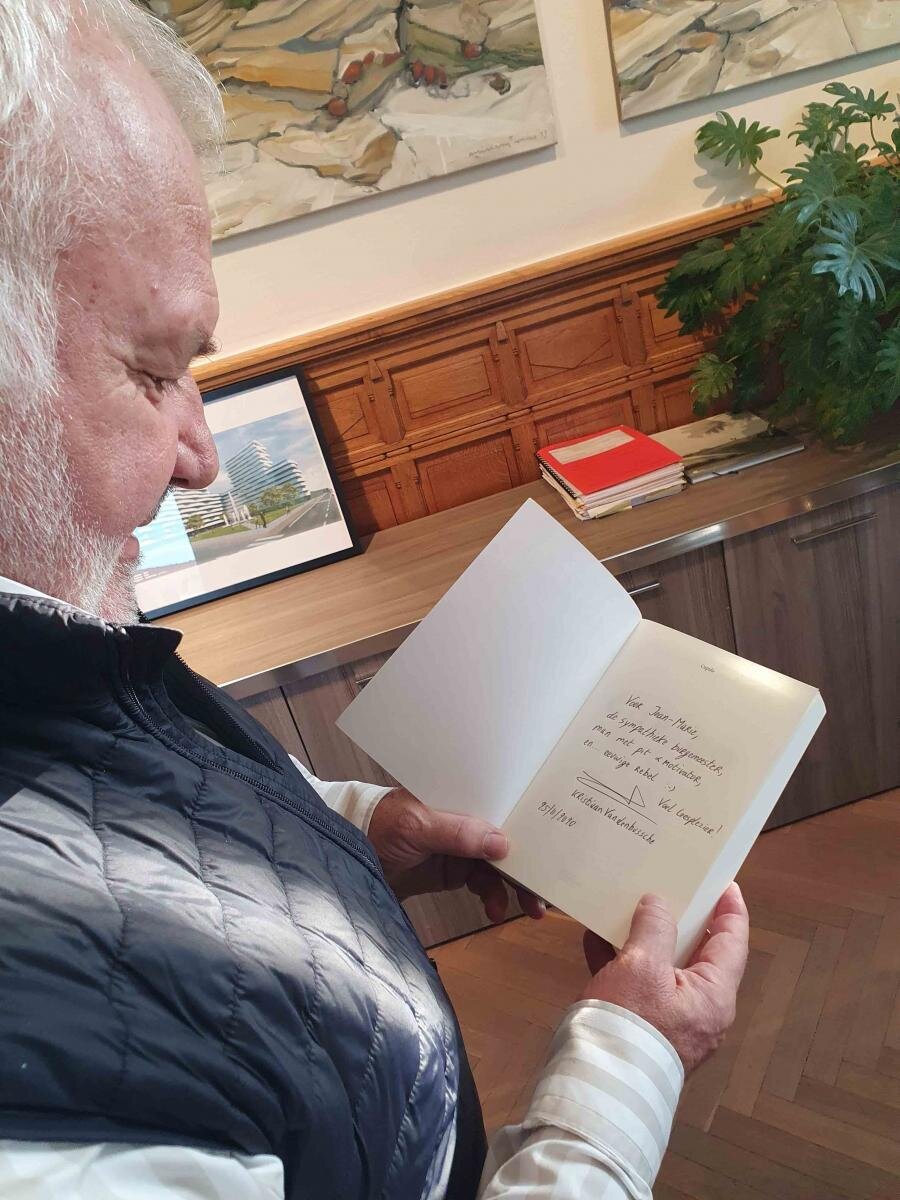 Cupido
Voor Jean-Marie,
de sympathieke burgemeester,
man met pit & motivator,
en... eeuwige rebel :-)
Veel leesplezier!
Kristiaan Vandenbussche